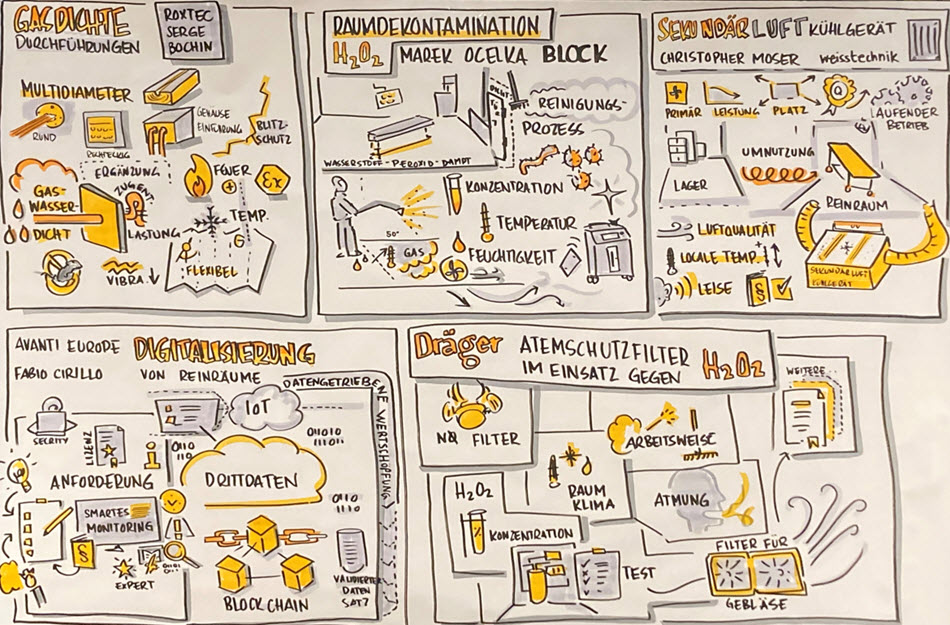 GASDICHTE
DURCHFÜHRUNGEN
ROXTEC
SERGE
BOCHIN
MULTIDIAMETER
RUND
RECHTECKIG
GEHÄUSE
EINFÜHRUNG
BLITZ-
SCHUTZ
ERGÄNZUNG
FEUER
Ex
GAS-
WASSER-
DICHT
ZUGENT-
LASTUNG
TEMP.
FLEXIBEL
VIBRA.
RAUMDEKONTAMINATION
H2O2 MAREK OCELKA BLOCK
DICHT
REINIGUNGS-
PROZESS
WASSERSTOFF-PEROXID-DAMPF
KONZENTRATION
TEMPERATUR
50°
GAS
FEUCHTIGKEIT
SEKUNDÄRLUFT KÜHLGERÄT
CHRISTOPHER MOSER weisstechnik
PRIMÄR LEISTUNG PLATZ
LAUFENDER
BETRIEB
UMNUTZUNG
LAGER
REINRAUM
LUFTQUALITÄT
LOCALE TEMP.
LEISE §
SEKUNDÄRLUFT
KÜHLGERÄT
AVANTI EUROPE DIGITALISIERUNG
FABIO CIRILLO VON REINRÄUME
DATENGETRIEBENE WERTSCHÖPFUNG
SECRITY
LIZENZ
i
IoT
0110
110
011010
111011
ANFORDERUNG
DRITTDATEN
SMARTES
MONITORING
0110
1110
§
EXPERT
BLOCKCHAIN
VALIDIERTER
DATEN
SATZ
Dräger ATEMSCHUTZFILTER
IM EINSATZ GEGEN H2O2
WEITERE
NO FILTER
ARBEITSWEISE
RAUM
KLIMA
ATMUNG
H2O2
KONZENTRATION
TEST
FILTER FÜR
GEBLÄSE